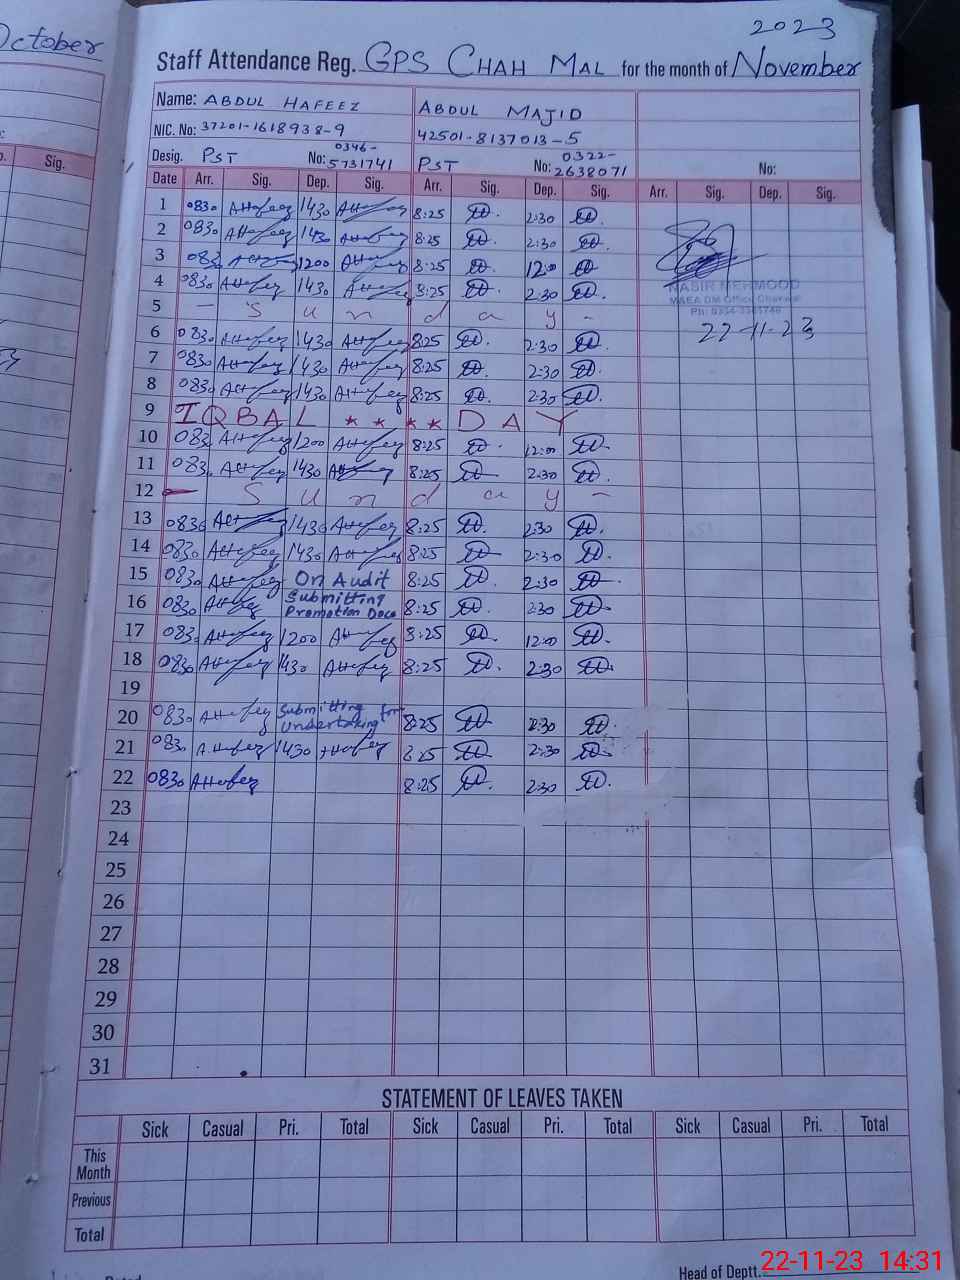 October
2023
Staff Attendance Reg. GPS CHAH MAL for the month of November
Name: ABDUL HAFEEZ ABDUL MAJID
NIC. No: 37201-1618938-9 42501-8137013-5
Desig. PST No: 0346-5731741 PST No: 0322-2638071 No:
Sig.
Date Arr. Sig. Dep. Sig. Arr. Sig. Dep. Sig. Arr. Sig. Dep. Sig.
1 0830 AHafeez 1430 AHafeez 8:25 2:30
2 0830 AHafeez 1430 AHafeez 8:25 2:30
3 083 1200 AHafeez 8:25 12:00
4 0830 AHafeez 1430 AHafeez 8:25 2:30
NASIR MEHMOOD
MAEA DM Office Chakwal
5 - S u n d a y -
22-11-23
6 0830 AHafeez 1430 AHafeez 8:25 2:30
7 0830 AHafeez 1430 AHafeez 8:25 2:30
8 0830 AHafeez 1430 AHafeez 8:25 2:30
9 IQBAL **** DAY
10 083 AHafeez 1200 AHafeez 8:25 12:00
11 083 AHafeez 1430 AHafeez 8:25 2:30
12 - S u n d a y -
13 0830 AHafeez 1430 AHafeez 8:25 2:30
14 0830 AHafeez 1430 AHafeez 8:25 2:30
15 0830 AHafeez On Audit 8:25 2:30
16 0830 AHafeez Submitting Promotion Docs 8:25 2:30
17 0830 AHafeez 1200 AHafeez 8:25 12:00
18 0830 AHafeez 1430 AHafeez 8:25 2:30
19
20 0830 AHafeez Submitting for Undertaking 8:25 2:30
21 0830 AHafeez 1430 AHafeez 8:25 2:30
22 0830 AHafeez 8:25 2:30
23
24
25
26
27
28
29
30
31
STATEMENT OF LEAVES TAKEN
Sick Casual Pri. Total Sick Casual Pri. Total Sick Casual Pri. Total
This Month
Previous
Total
Head of Deptt.
22-11-23 14:31